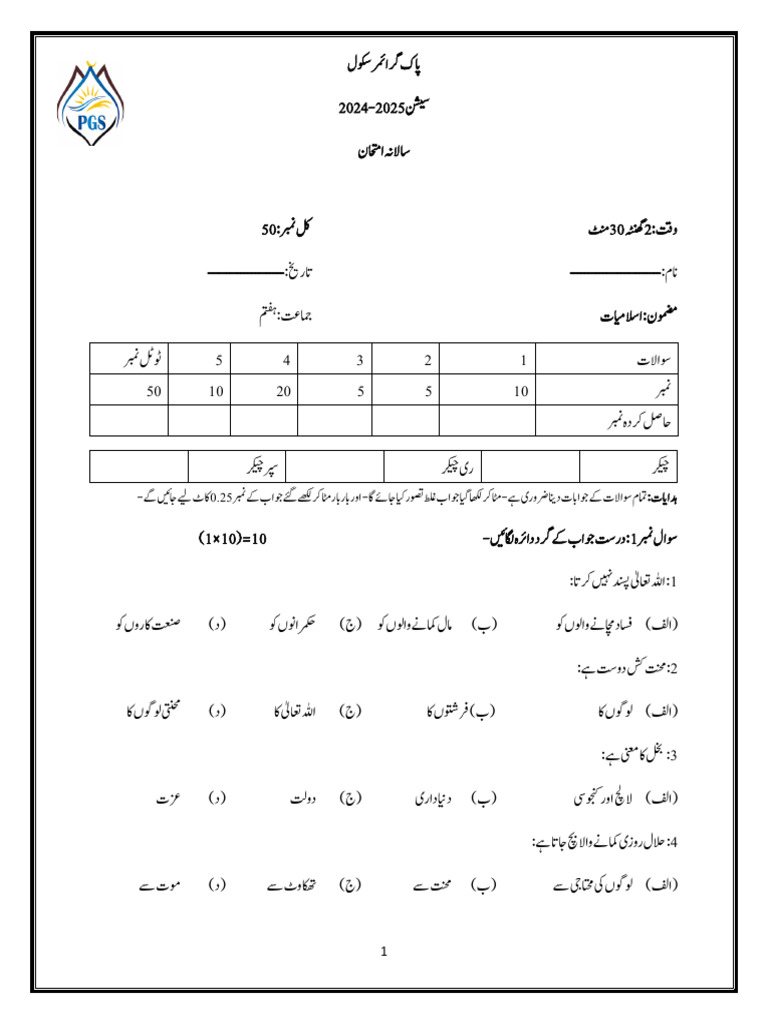 پاک گرائمر سکول
PGS
سیشن 2025-2024
سالانہ امتحان
وقت: 2 گھنٹہ 30 منٹ کل نمبر: 50
نام: ____________ تاریخ: ____________
مضمون: اسلامیات جماعت: ہفتم
سوالات 1 2 3 4 5 ٹوٹل نمبر
نمبر 10 5 5 20 10 50
حاصل کردہ نمبر
چیکر ری چیکر سپر چیکر
ہدایات: تمام سوالات کے جوابات دینا ضروری ہے۔ مٹا کر لکھا گیا جواب غلط تصور کیا جائے گا۔ اور بار بار مٹا کر لکھے گئے جواب کے نمبر 0.25 کاٹ لیے جائیں گے۔
سوال نمبر 1: درست جواب کے گرد دائرہ لگائیں۔ (1×10)=10
1: اللہ تعالیٰ پسند نہیں کرتا:
(الف) فساد مچانے والوں کو (ب) مال کمانے والوں کو (ج) حکمرانوں کو (د) صنعت کاروں کو
2: محنت کش دوست ہے:
(الف) لوگوں کا (ب) فرشتوں کا (ج) اللہ تعالیٰ کا (د) محنتی لوگوں کا
3: بخل کا معنی ہے:
(الف) لالچ اور کنجوسی (ب) دنیاداری (ج) دولت (د) عزت
4: حلال روزی کمانے والا بچ جاتا ہے:
(الف) لوگوں کی محتاجی سے (ب) محنت سے (ج) تھکاوٹ سے (د) موت سے
1